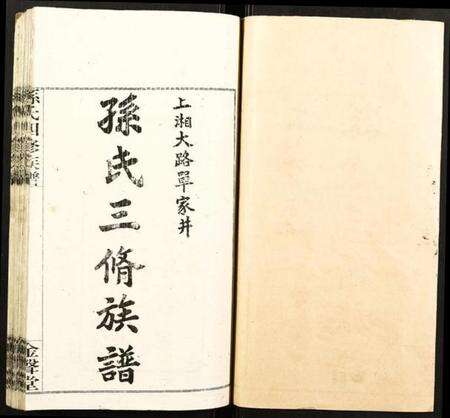 上湘大路單家井
孫氏三脩族譜
孫氏四修族譜
金聲堂